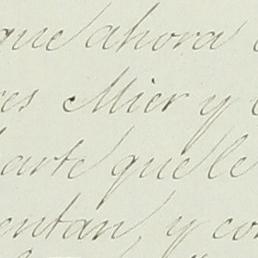 que ahora
res Mier y
parte que le
entan, y con